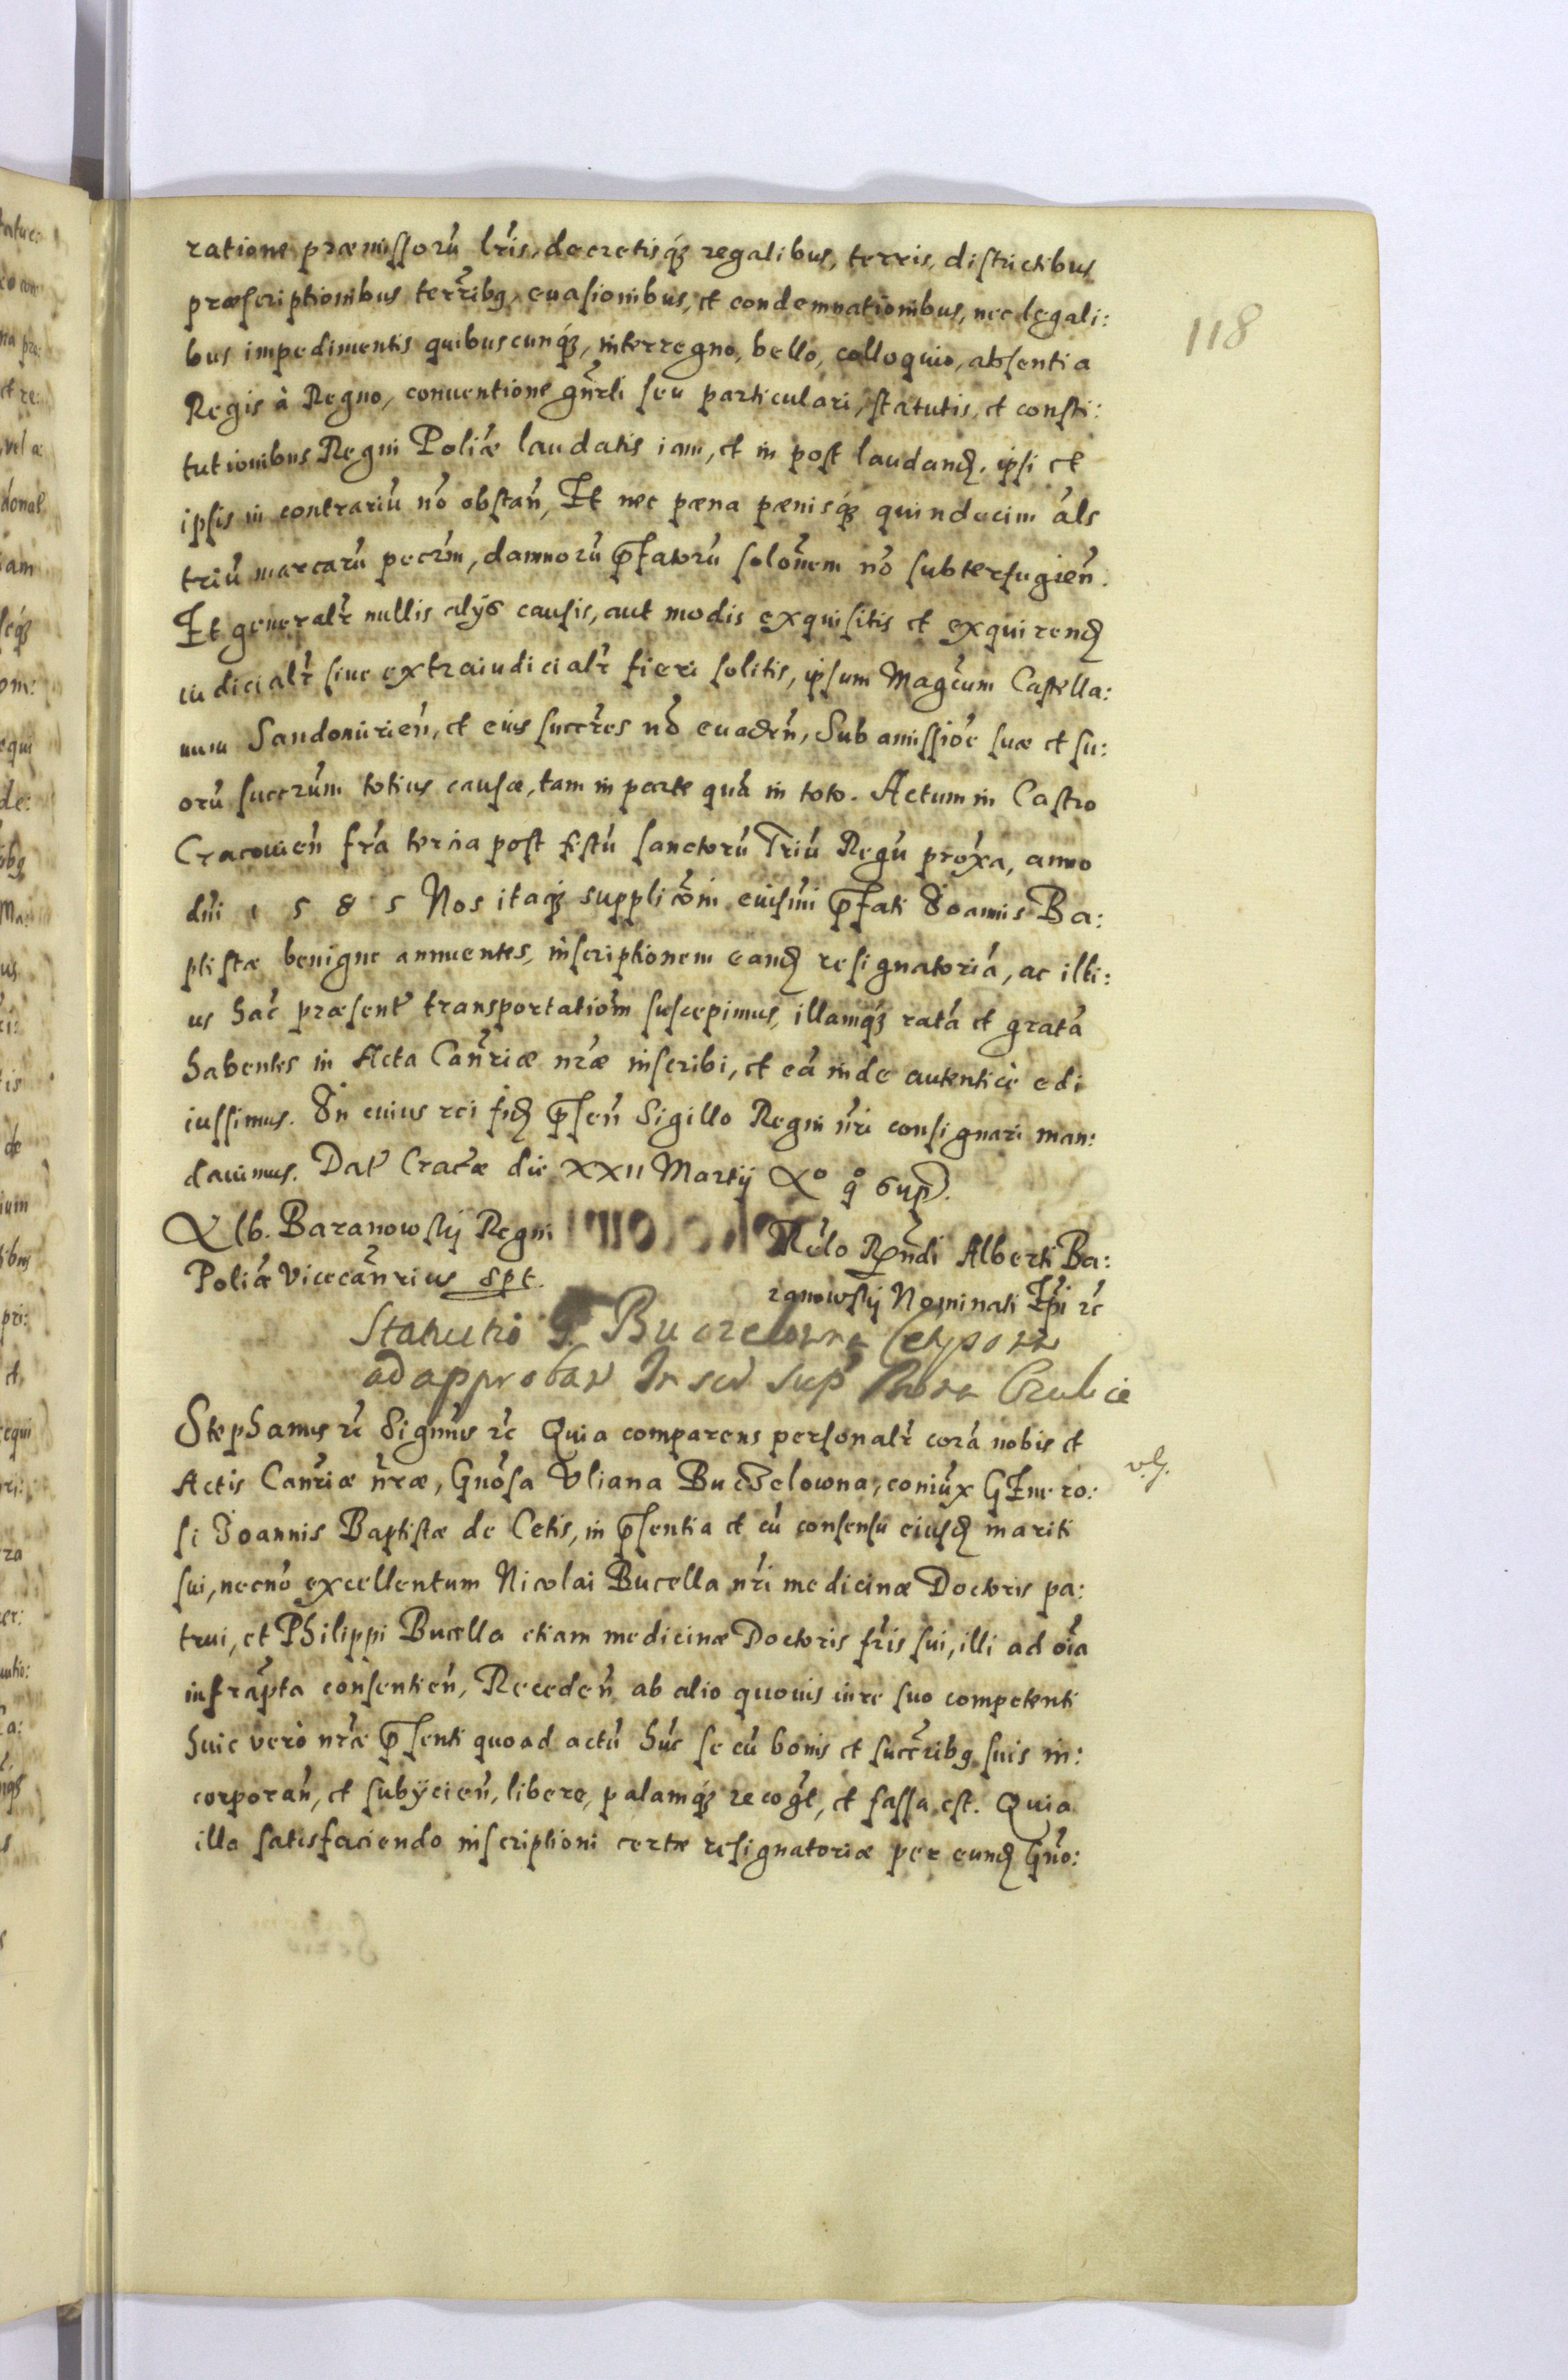 118
ratione præmissorū lr̄is, decretisq́ꝫ regalibus, terris, districtibus
præscriptionibus terr̄ibꝗ euasionibus, et condemnationibus, nec legali:
bus impedimentis quibuscunq́ꝫ, interregno, bello, colloquio, absentia
Regis à Regno, conuentione gn̄rli seu particulari, statutis, et consti:
tutionibus Regni Poliæ laudatis iam, et in post laudanꝺ. ipsi et
ipsis in contrariū nō obstan̄, Et nec pæna pænisq́ꝫ quindecim āls
triū marcarū pecr̄m, damnorū p̄fatorū solōnem nō subterfugien̄.
Et generalr̄ nullis alijs causis, aut modis exquisitis et exquirenꝺ
iudicialr̄ siue extraiudicialr̄ fieri solitis, ipsum Magc̄um Castella:
num Sandomirien̄, et eius succr̄es nō euaden̄, Sub amissiōe suæ et su:
orū succr̄um totius causæ, tam in parte quā in toto. Actum in Castro
Cracouien̄ fr̄a tercia post festū sanctorū Triū Regū prox̄a, anno
dn̄i 1 5 8 5 Nos itaq́ꝫ supplicōni euisꝺm̄i p̄fati Joannis Ba:
ptistæ benigne annuentes, inscriptionem eanꝺ resignatoriā, ac illi:
us hāc præsent̄ transportatiōm suscepimus, illamq́ꝫ ratā et gratā
habentes in Acta Can̄riæ nr̄æ inscribi, et eā inde autenticè edi
iussimus. In cuius rei fiꝺ p̄sen̄ Sigillo Regni nr̄i consignari man:
dauimus. Dat̄ Crac̄æ die XXII Martij Aº qº sup.
Alb. Baranowskij Regni
Poliæ Vicecan̄rius spt.
Rēlo Rn̄di Alberti Ba:
ranowskij Nominati Ep̄i ꝛc
ad approban Inscr sup
Stephanus ꝛc Signm̄us ꝛc Quia comparens personalr̄ corā nobis et
Actis Can̄riæ nr̄æ, Gnōsa Vliana Buczelowna, coniūx GEnero:
si Joannis Baptistæ de Cetis, in p̄sentia et cū consensu eiusꝺ mariti
sui, necnō excellentum Nicolai Bucella nr̄i medicinæ Doctoris pa:
trui, et Philippi Bucella etiam medicinæ Doctoris fr̄is sui, illi ad oīa
infrāpta consentien̄, Receden̄ ab alio quouis iure suo competenti
huic verò nr̄æ p̄senti quoad actū hūc se cū bonis et succr̄ibꝗ suis in:
corporan̄, et subijcien̄, libere, palamq́ꝫ recogt̄, et fassa est. Quia
illa satisfaciendo inscriptioni certæ resignatoriæ per eunꝺ Gnō: